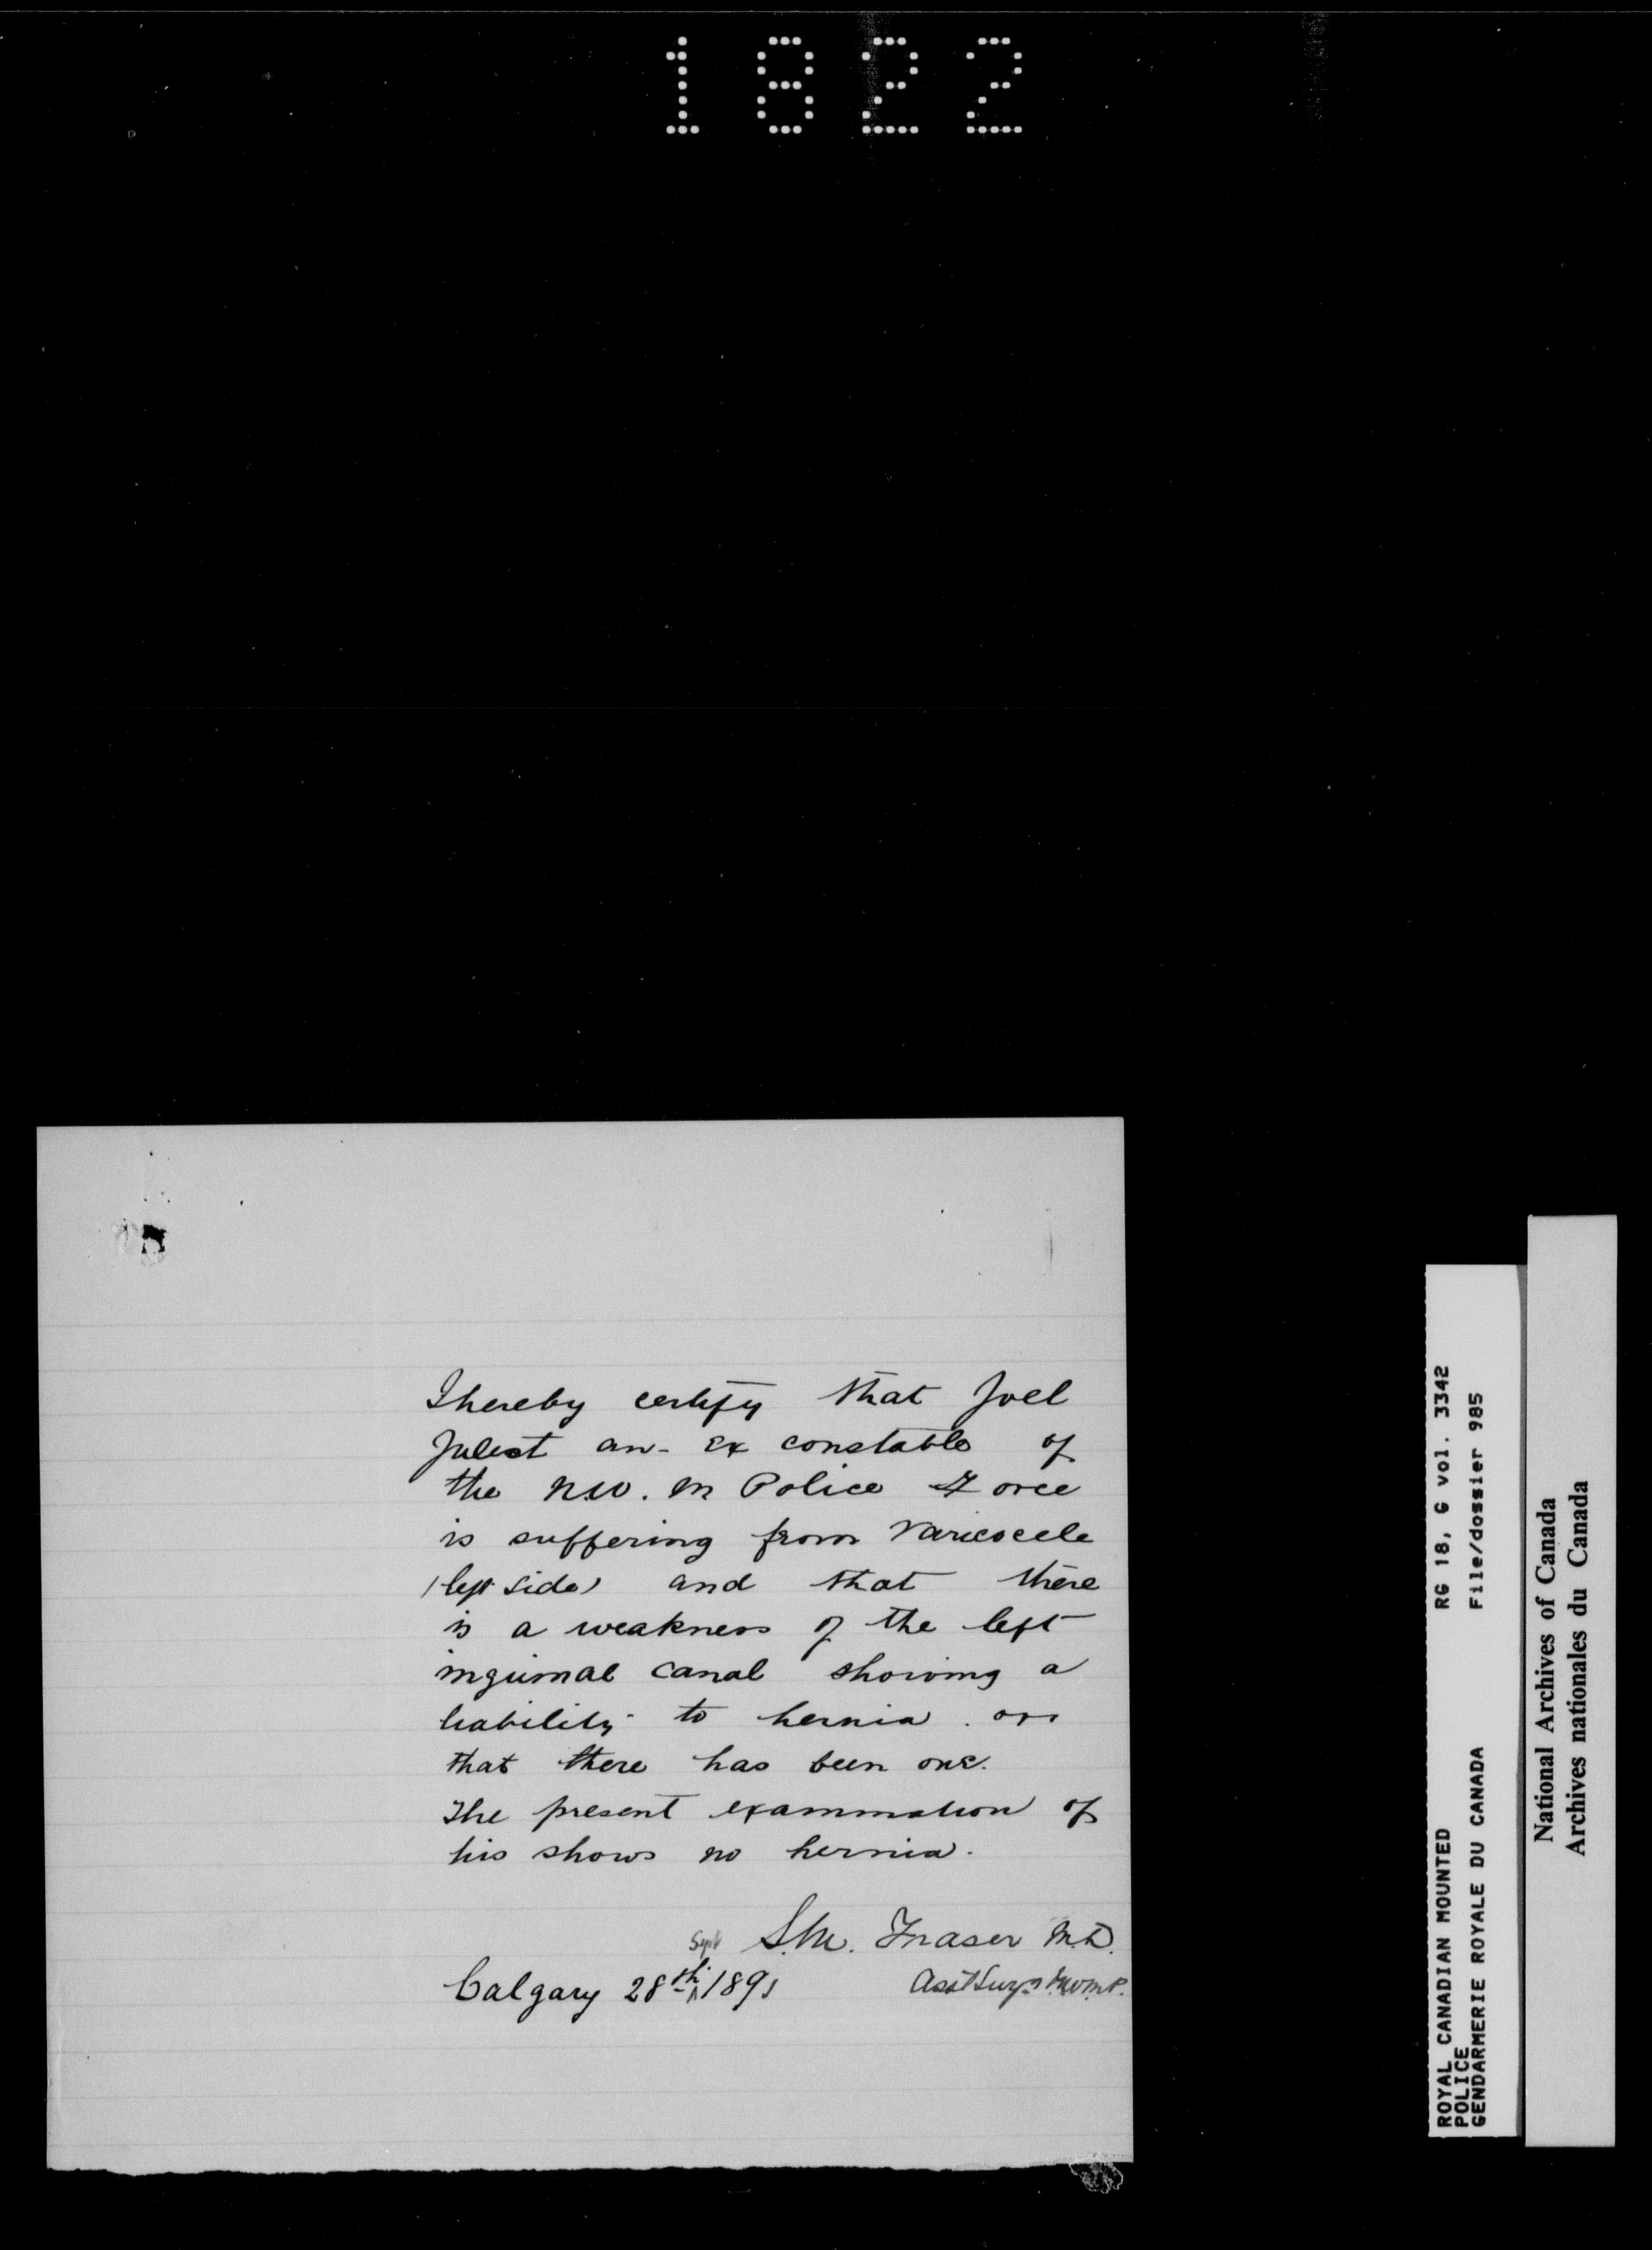 1822
I hereby certify that Joel
Julest an ex constable of
the N.W. M Police Force
is suffering from Varicocele
(left side) and that there
is a weakness of the left
inguinal canal showing a
liability to hernia. or
that there has been one.
The present examination of
his shows no hernia.
S.M. Fraser M.D.
Calgary 28th Sept 1891
Asst Surgn N.W.M.P.
ROYAL CANADIAN MOUNTED RG 18, G vol. 3342
POLICE
GENDARMERIE ROYALE DU CANADA File/dossier 985
National Archives of Canada
Archives nationales du Canada